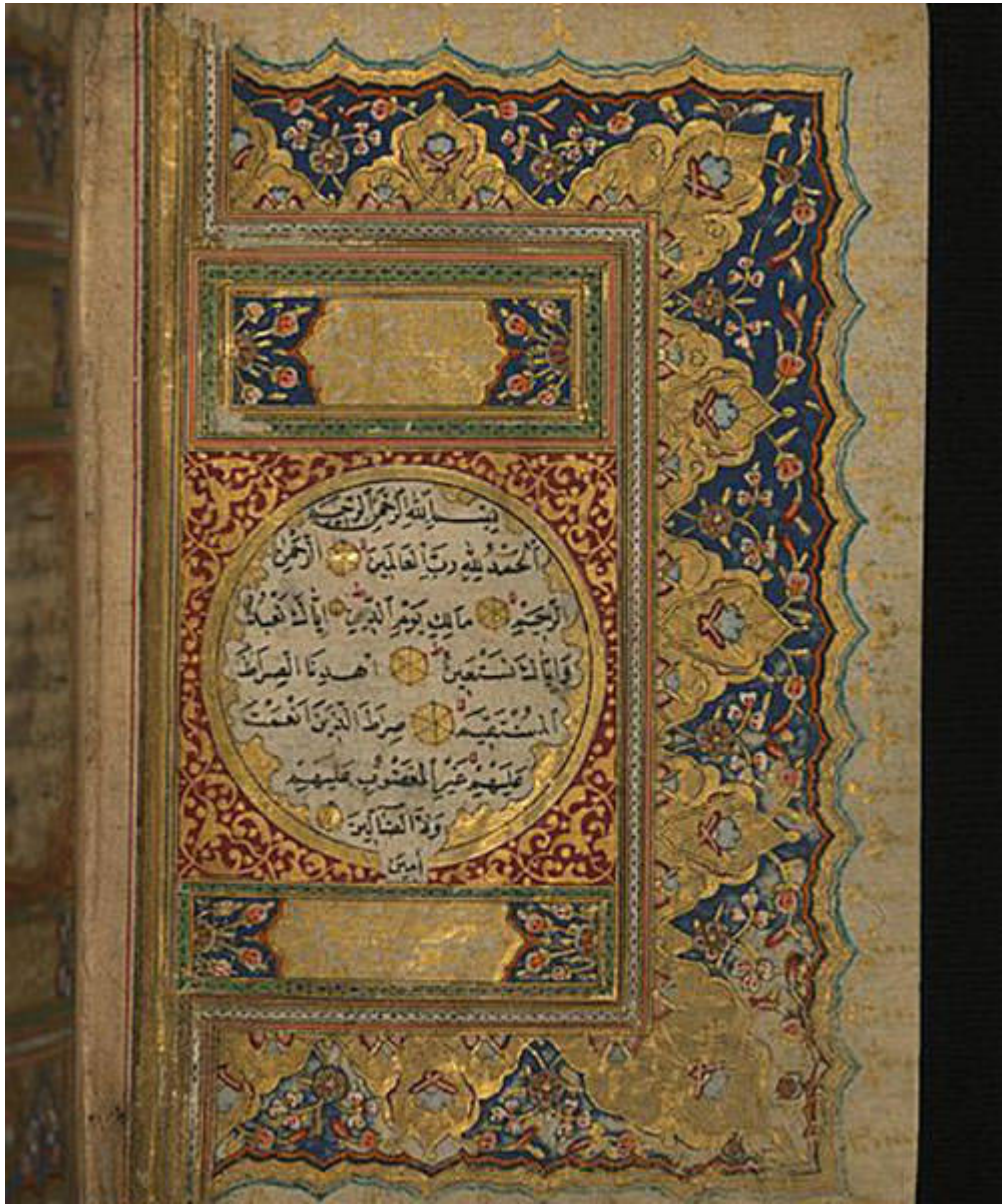 بِسْمِ اللهِ الرَّحْمٰنِ الرَّحِيمِ
اَلْحَمْدُ لِلّٰهِ رَبِّ الْعَالَمِينَ اَلرَّحْمٰنِ
الرَّحِيمِ مَالِكِ يَوْمِ الدِّينِ اِيَّاكَ نَعْبُدُ
وَاِيَّاكَ نَسْتَعِينُ اِهْدِنَا الصِّرَاطَ
الْمُسْتَقِيمَ صِرَاطَ الَّذِينَ اَنْعَمْتَ
عَلَيْهِمْ غَيْرِ الْمَغْضُوبِ عَلَيْهِمْ
وَلَا الضَّالِّينَ
اٰمِينَ